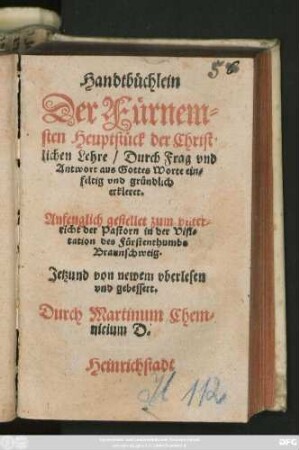 Handtbüchlein
Der Fürnem-
sten Heuptstück der Christ-
lichen Lehre / Durch Frag vnd
Antwort aus Gottes Worte ein-
feltig vnd gründlich
erkleret.
Anfenglich gestellet zum vnter-
richt der Pastorn in der Visi-
tation des Fürstenthumbs
Braunschweig.
Jetzund von newem vberlesen
vnd gebessert.
Durch Martinum Chem-
nicium D.
Heinrichstadt
112